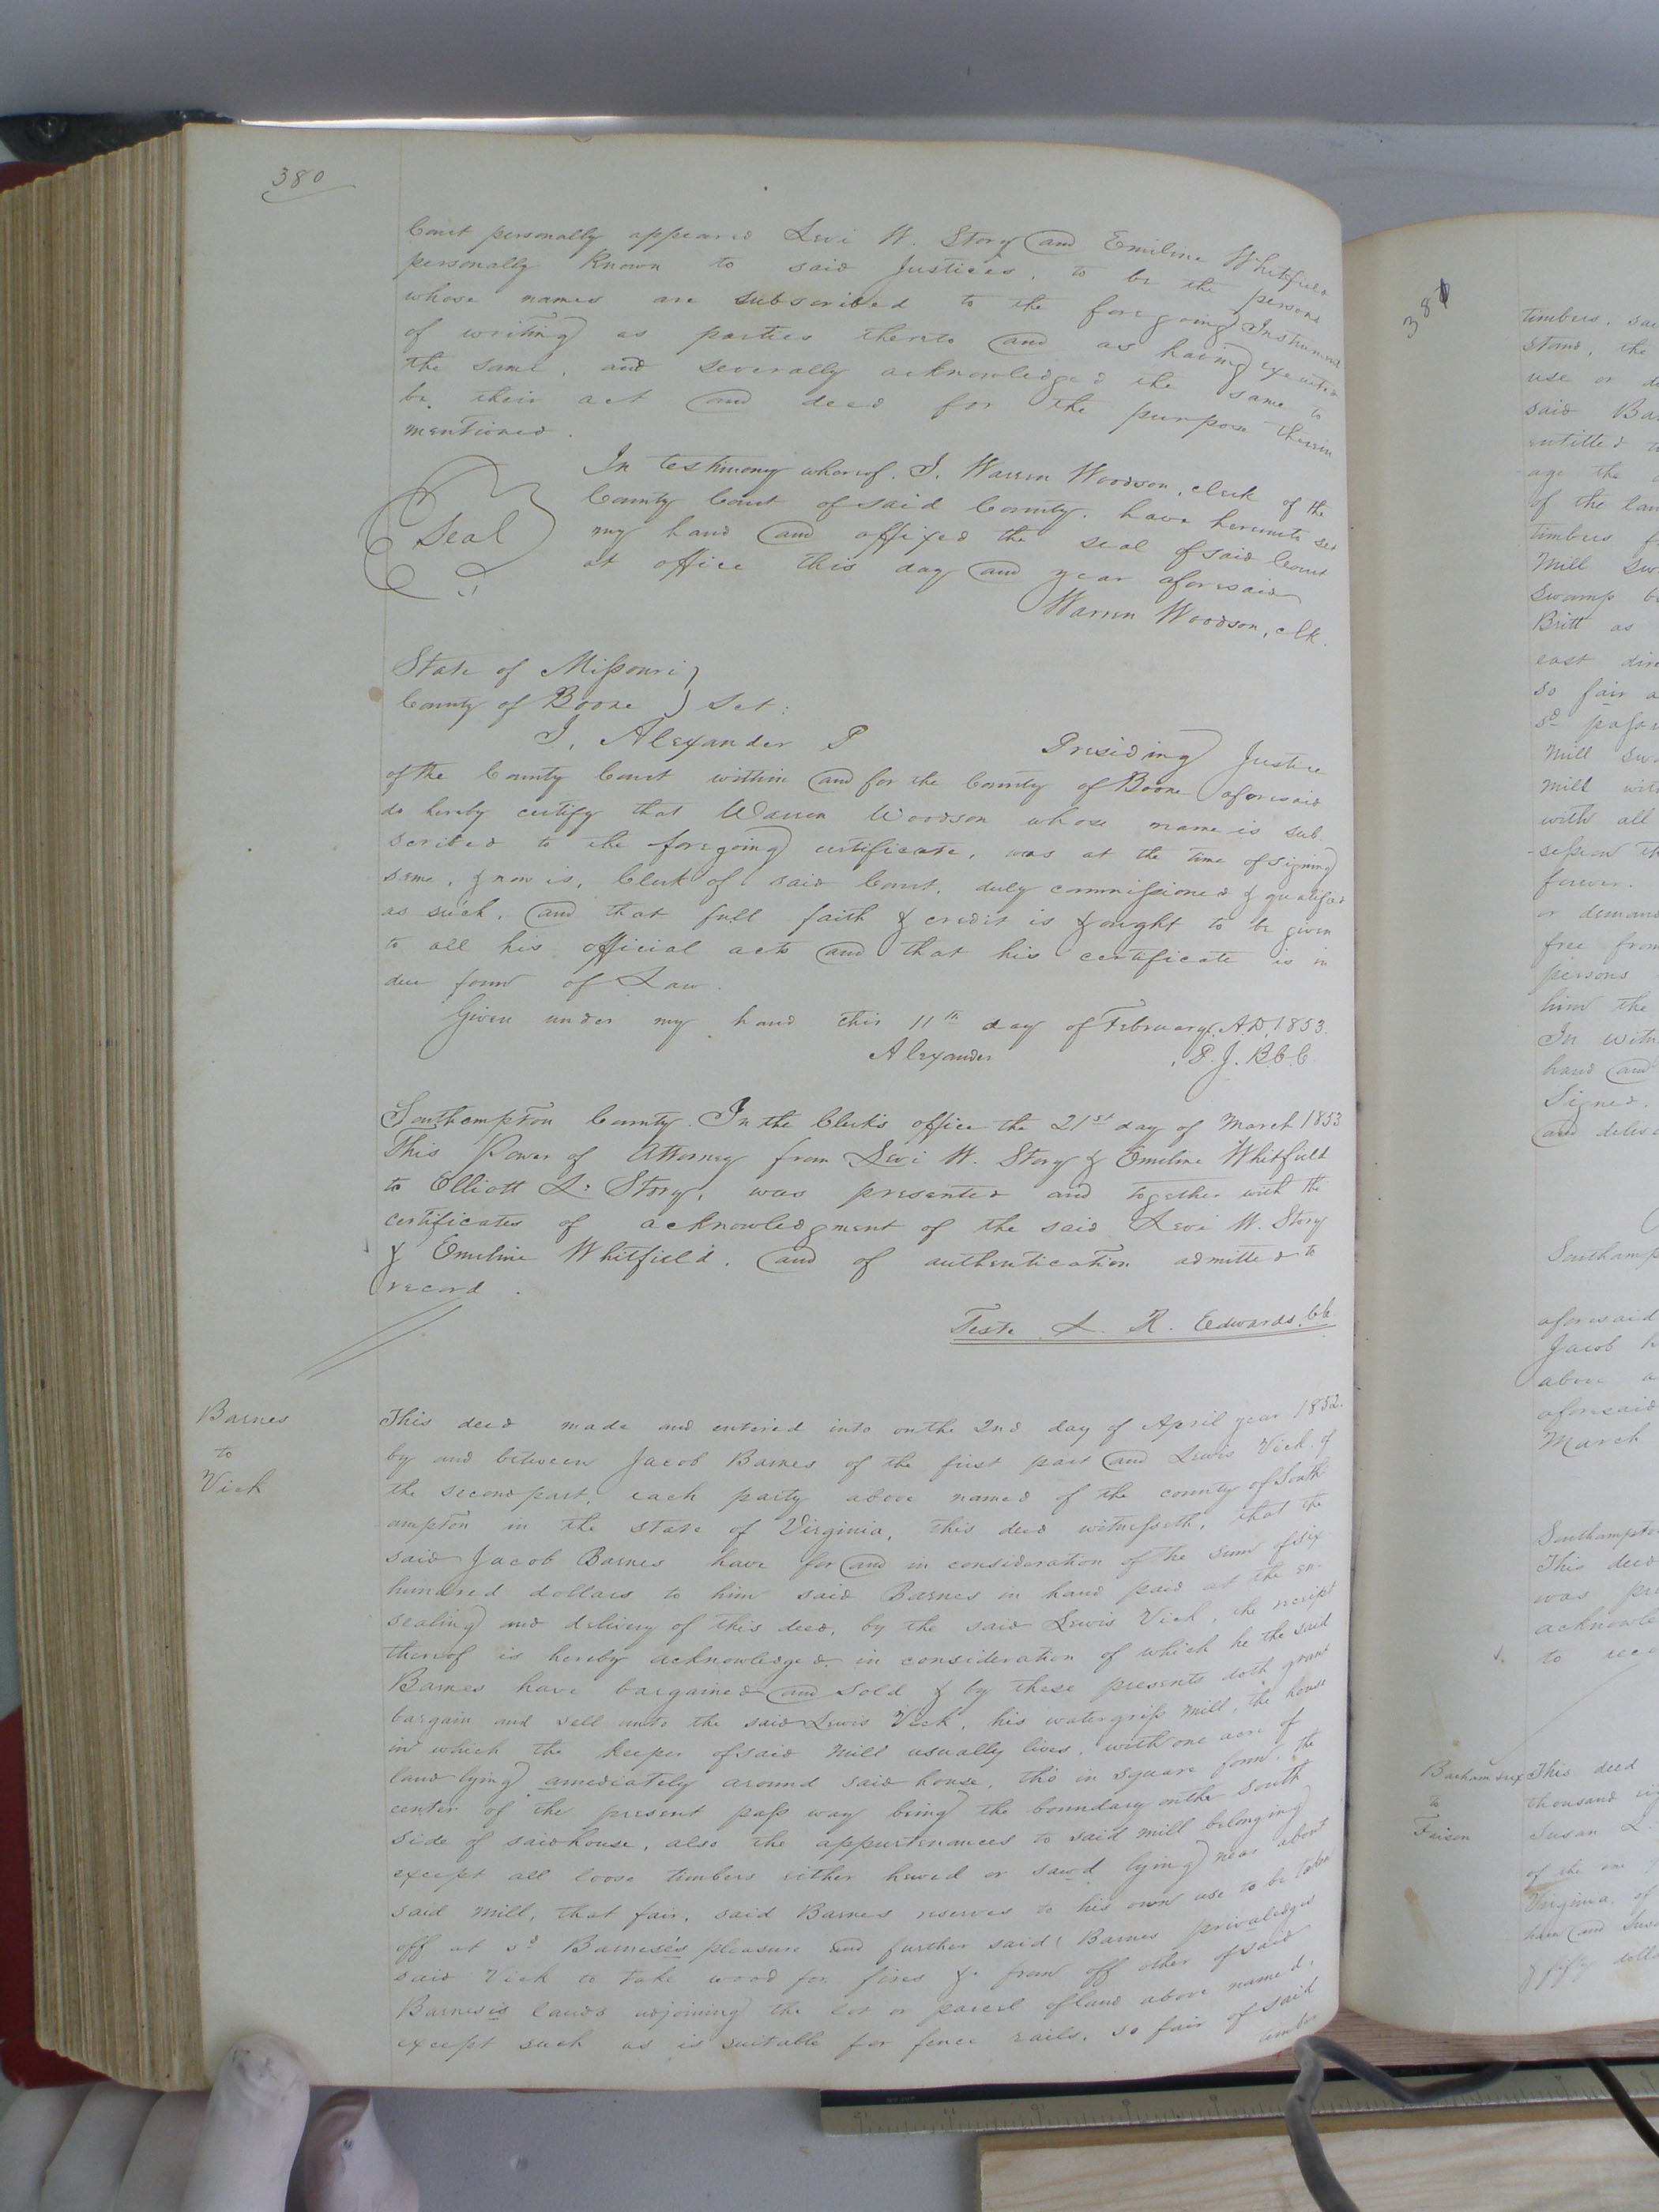 380
Court personally appeared Levi W. Story and Emiline Whitfield
personally known to said Justices, to be the persons
whose names are subscribed to the foregoing Instrument
of writing as parties thereto and as having executed
the same, and severally acknowledged the same to
be their act and deed for the purpose therein
mentioned.
In testimony whereof, I, Warren Woodson, clerk of the
County Court of said County, have hereunto set
my hand and affixed the seal of said Court
at office this day and year aforesaid
Seal
Warren Woodson, clk.
State of Missouri }
County of Boone } Sct:
I, Alexander P Presiding Justice
of the County Court within and for the County of Boone aforesaid
do hereby certify that Warren Woodson whose name is sub-
scribed to the foregoing certificate, was at the time of signing
same, & now is, Clerk of said Court, duly commissioned & qualified
as such, and that full faith & credit is & ought to be given
to all his official acts and that his certificate is in
due form of Law.
Given under my hand this 11th day of February, A.D. 1853.
Alexander , P. J. B.C.C.
Southampton County. In the Clerk's office the 21st day of March 1853
This Power of Attorney from Levi W. Story & Emeline Whitfield
to Elliott L. Story, was presented and together with the
certificates of acknowledgment of the said Levi W. Story
& Emeline Whitfield, and of authentication admitted to
record.
Teste L. R. Edwards, Clk
Barnes
to
Vick
This deed made and entered into on the 2nd day of April year 1852.
by and between Jacob Barnes of the first part and Lewis Vick of
the second part, each party above named of the county of South-
ampton in the state of Virginia, this deed witnesseth, that the
said Jacob Barnes have for and in consideration of the sum of six
hundred dollars to him said Barnes in hand paid at the en-
sealing and delivery of this deed, by the said Lewis Vick, the receipt
thereof is hereby acknowledged in consideration of which he the said
Barnes have bargained and sold & by these presents doth grant
bargain and sell unto the said Lewis Vick, his watergrist mill, the house
in which the keeper of said mill usually lives, with one acre of
land lying amediately around said house, this in square form, the
center of the present pass way being the boundary on the south
side of said house, also the appurtenances to said mill belonging
except all loose timbers either hewed or sawd lying near about
said mill, that fair, said Barnes reserves to his own use to be taken
off at sd Barnese's pleasure and further said Barnes privaledges
said Vick to take wood for fires &c from off other of said
Barnesis lands adjoining the lot or parcel of land above named,
except such as is suitable for fence rails, so fair of said
timber
381
timbers, sai
stand, the
use or d
said Ba
entitled t
age the
of the lan
timbers f
Mill Sw
Swamp b
Britt as
east dir
so fair a
sd passa
Mill Sw
Mill wit
with all
forever.
or demand
free from
persons
him the
In witn
hand and
Signed,
and deliv
Southamp
aforesaid
Jacob
above a
aforesaid
March
Southampto
This deed
was pre
acknowle
to reco
Barham &
to
Faison
This deed
thousand eig
Susan L.
of the one
Virginia, of
ham and Sus
& fifty dolla